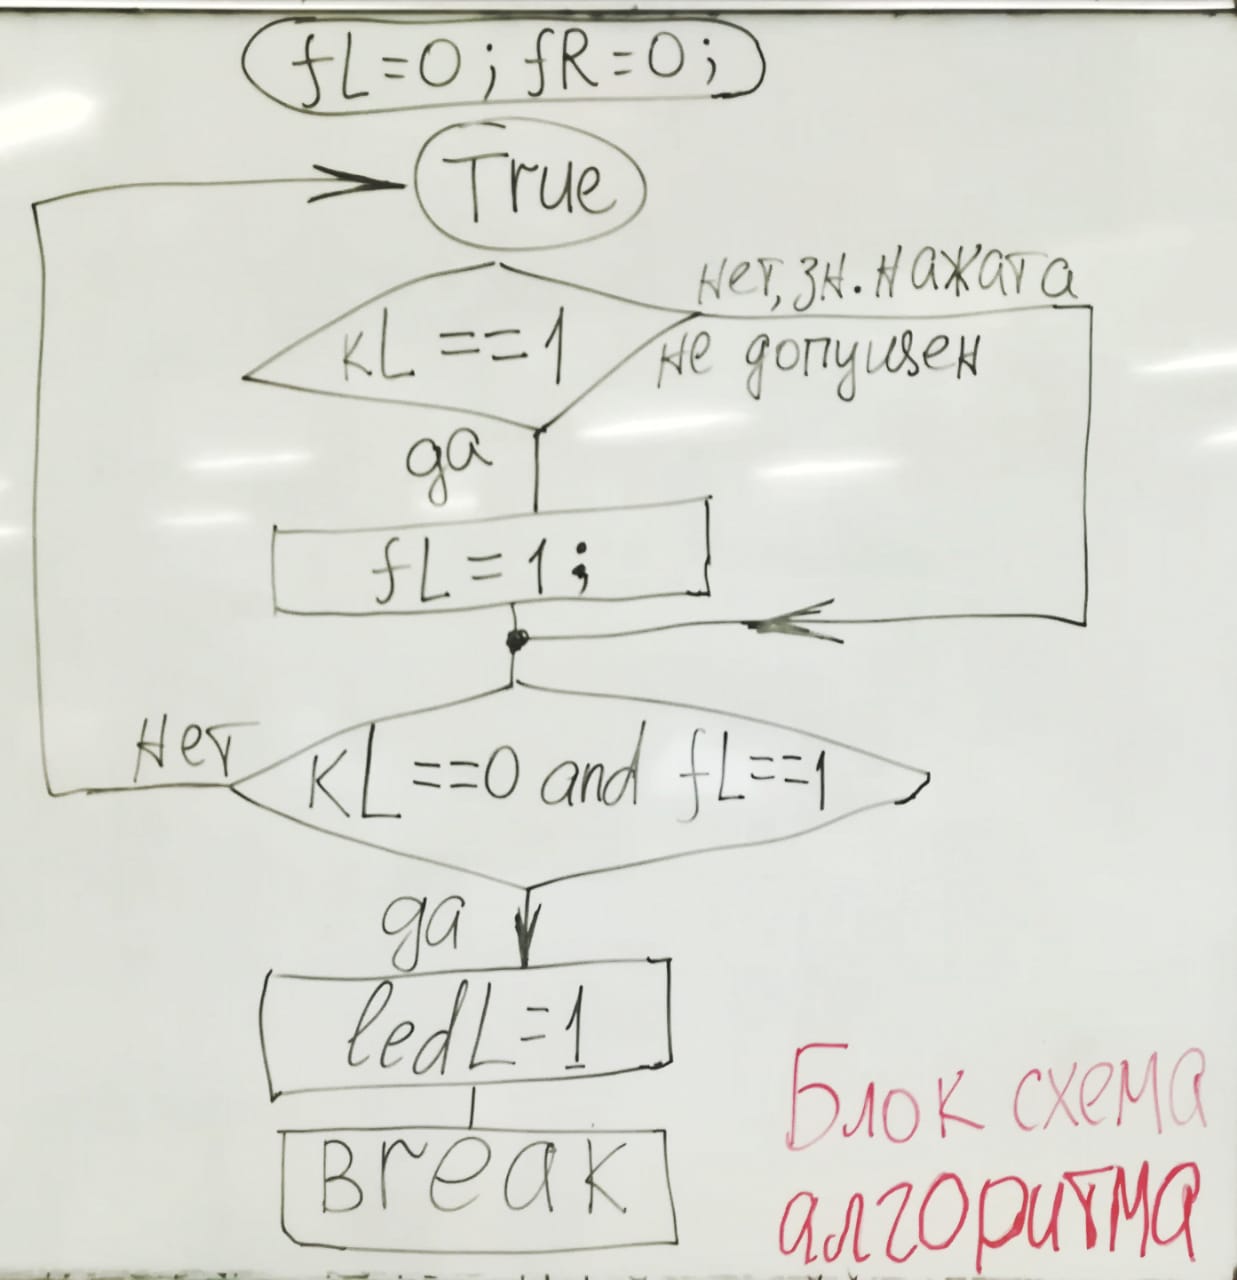 fL=0; fR=0;
True
нет, зн. нажата
KL ==1
не допущен
да
fL=1;
нет
KL==0 and fL==1
да
ledL=1
Break
Блок схема
алгоритма